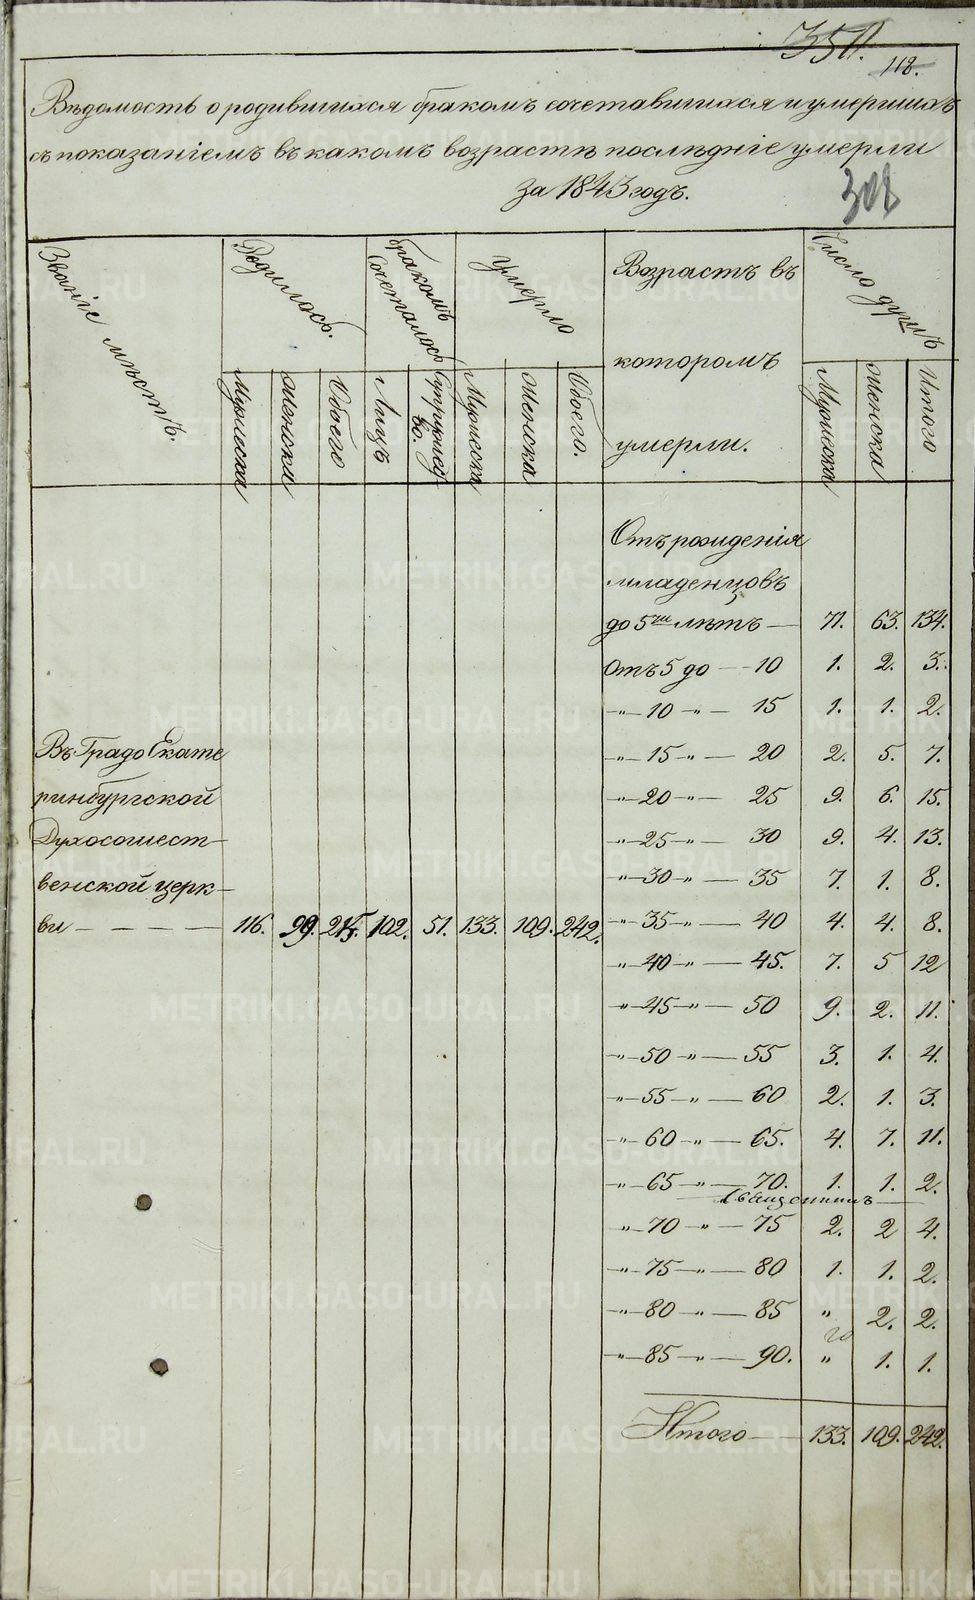 350.
118.
Вѣдомость о родившихся бракомъ сочетавшихся и умершихъ
съ показаніемъ въ какомъ возрастѣ послѣдніе умерли
за 1843 годъ.
308
Званіе мѣстъ.
Родилось.
Бракомъ сочеталось
Умерло
Возрастъ въ
которомъ
умерли.
Число душъ
Мужеска
Женска
Обоего
Лицъ
Мужеска
Женска
Обоего.
Мужеска
Женска
Итого
Отъ рожденія
младенцовъ
до 5ти лѣтъ — 71. 63. 134.
Отъ 5 до — 10 1. 2. 3.
„ — 10 — „ — 15 1. 1. 2.
„ — 15 — „ — 20 2. 5. 7.
„ — 20 — „ — 25 9. 6. 15.
„ — 25 — „ — 30 9. 4. 13.
„ — 30 — „ — 35 7. 1. 8.
Въ Градо Екате
ринбургской
Духосошест-
венской церк-
ви — — — — 116. 99. 215. 102. 51. 133. 109. 242.
„ — 35 — „ — 40 4. 4. 8.
„ — 40 — „ — 45. 7. 5 12
„ — 45 — „ — 50 9. 2. 11.
„ — 50 — „ — 55 3. 1. 4.
„ — 55 — „ — 60 2. 1. 3.
„ — 60 — „ — 65. 4. 7. 11.
„ — 65 — „ — 70. 1. 1. 2.
Священникъ
„ — 70 — „ — 75 2. 2 4.
„ — 75 — „ — 80 1. 1. 2.
„ — 80 — „ — 85 „ 2. 2.
„ — 85 — „ — 90. „ 1. 1.
Итого — 133. 109. 242.
METRIKI.GASO-URAL.RU